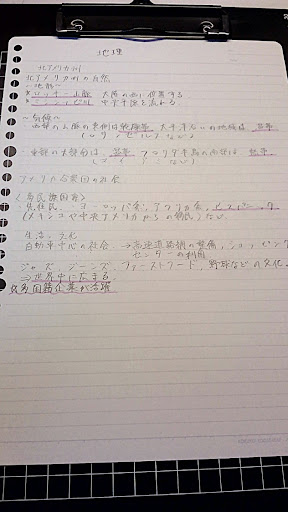 地理
北アメリカ州
北アメリカ州の自然
~地形~
* ロッキー山脈 大陸の西に位置する
* ミシシッピ川 中央平原を流れる。
~気候~
西部の山脈の東側は乾燥帯 太平洋沿いの地域は 温帯
(ロサンゼルスなど)
東部の大部分は 温帯 フロリダ半島の南部は 熱帯
アメリカ合衆国の社会
<多民族国家>
先住民、ヨーロッパ系、アフリカ系、ヒスパニック
(メキシコや中央アメリカからの移民)など
生活・文化
自動車中心の社会 →高速道路網の整備、ショッピング
センターの利用
ジャズ、ジーンズ、ファーストフード、野球などの文化
⇒世界中に広まる。
多国籍企業が活躍